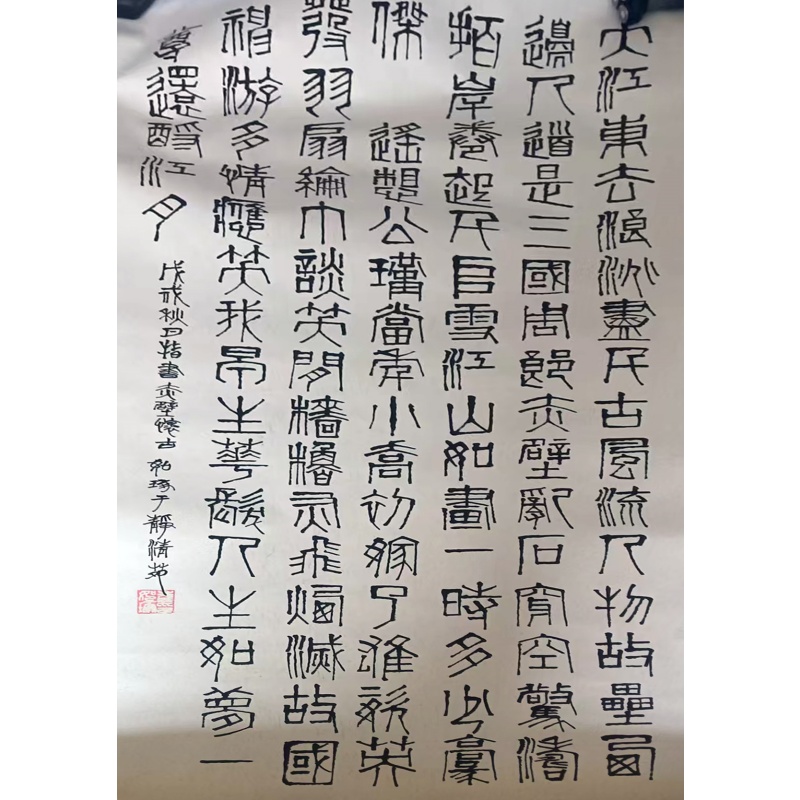 大江東去浪淘盡千古風流人物故壘西
邊人道是三國周郎赤壁亂石穿空驚濤
拍岸卷起千堆雪江山如畫一時多少豪
傑 遙想公瑾當年小喬初嫁了雄姿英
發羽扇綸巾談笑間檣櫓灰飛煙滅故國
神游多情應笑我早生華髮人生如夢一
尊還酹江月
戊戌秋月指書赤壁懷古 如琢于靜清苑